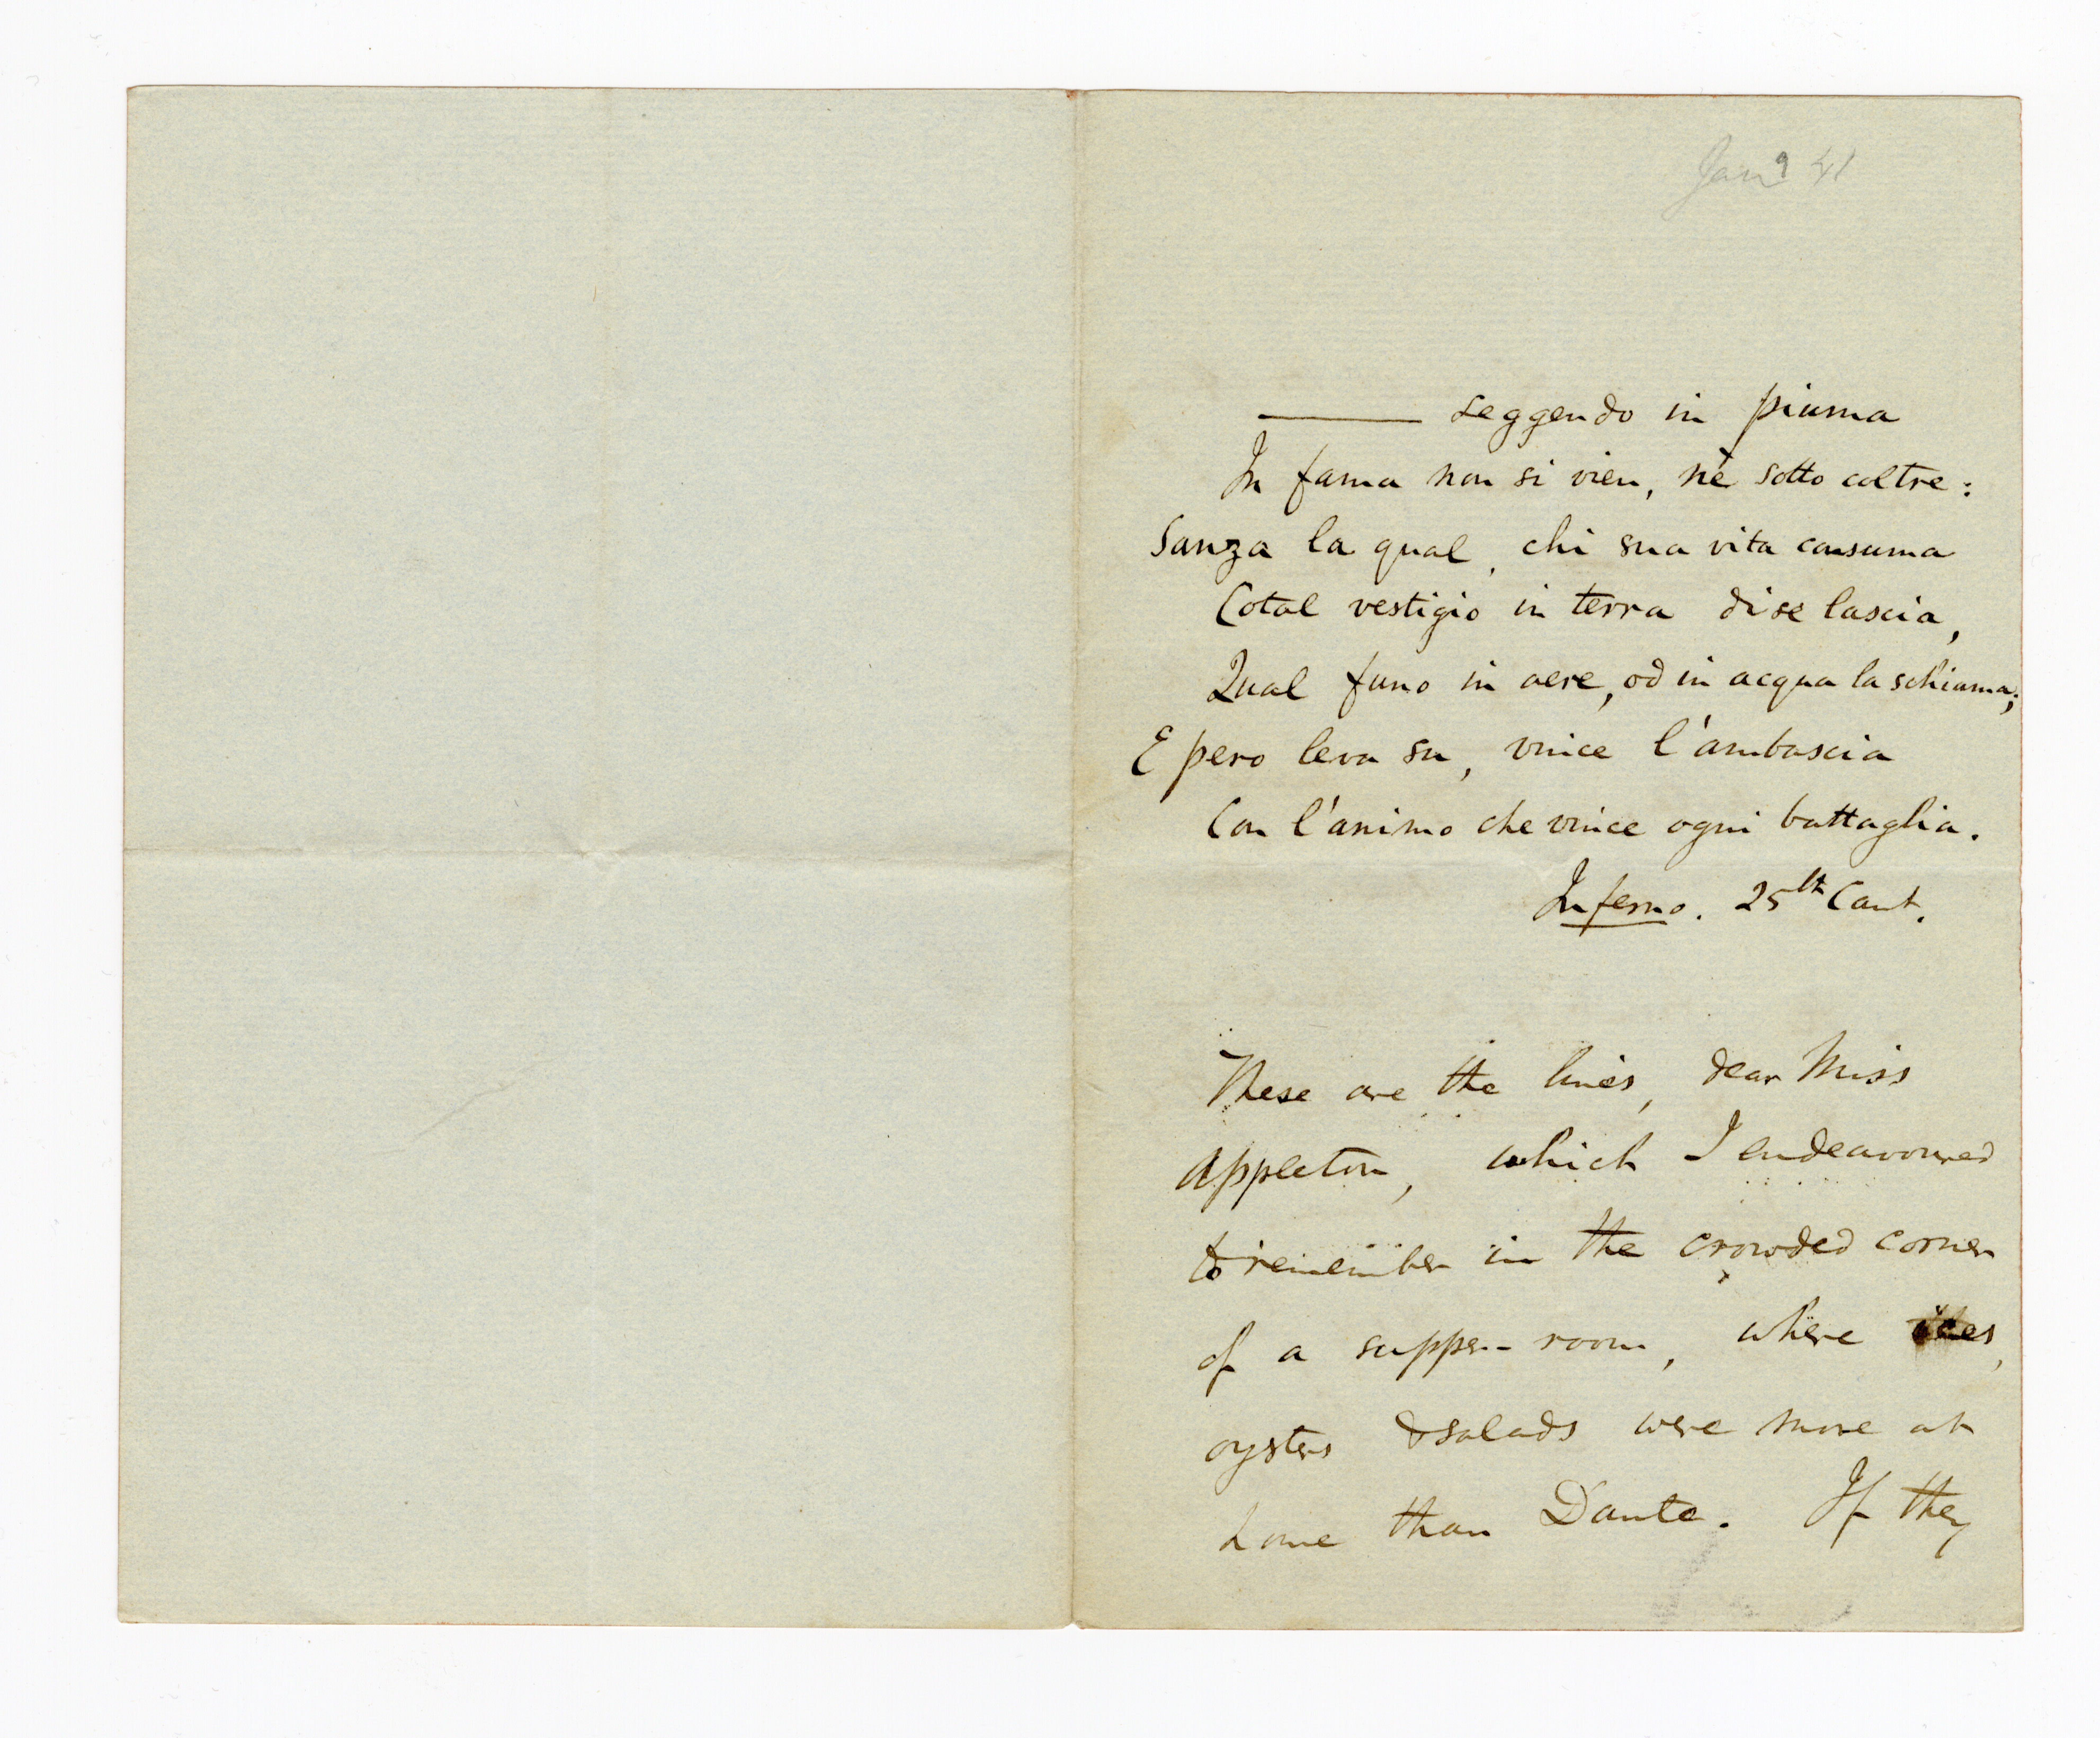 Jany 41
——— Leggendo in piuma
In fama non si vien, nè sotto coltre:
Sanza la qual, chi sua vita consuma
Cotal vestigio in terra di se lascia,
Qual fumo in aere, od in acqua la schiuma;
E pero leva su, vince l'ambascia
Con l'animo che vince ogni battaglia.
Inferno. 25th Cant.
These are the lines, dear Miss
Appleton, which I endeavoured
to remember in the crowded corner
of a supper-room, where ices,
oysters & salads were more at
home than Dante. If they